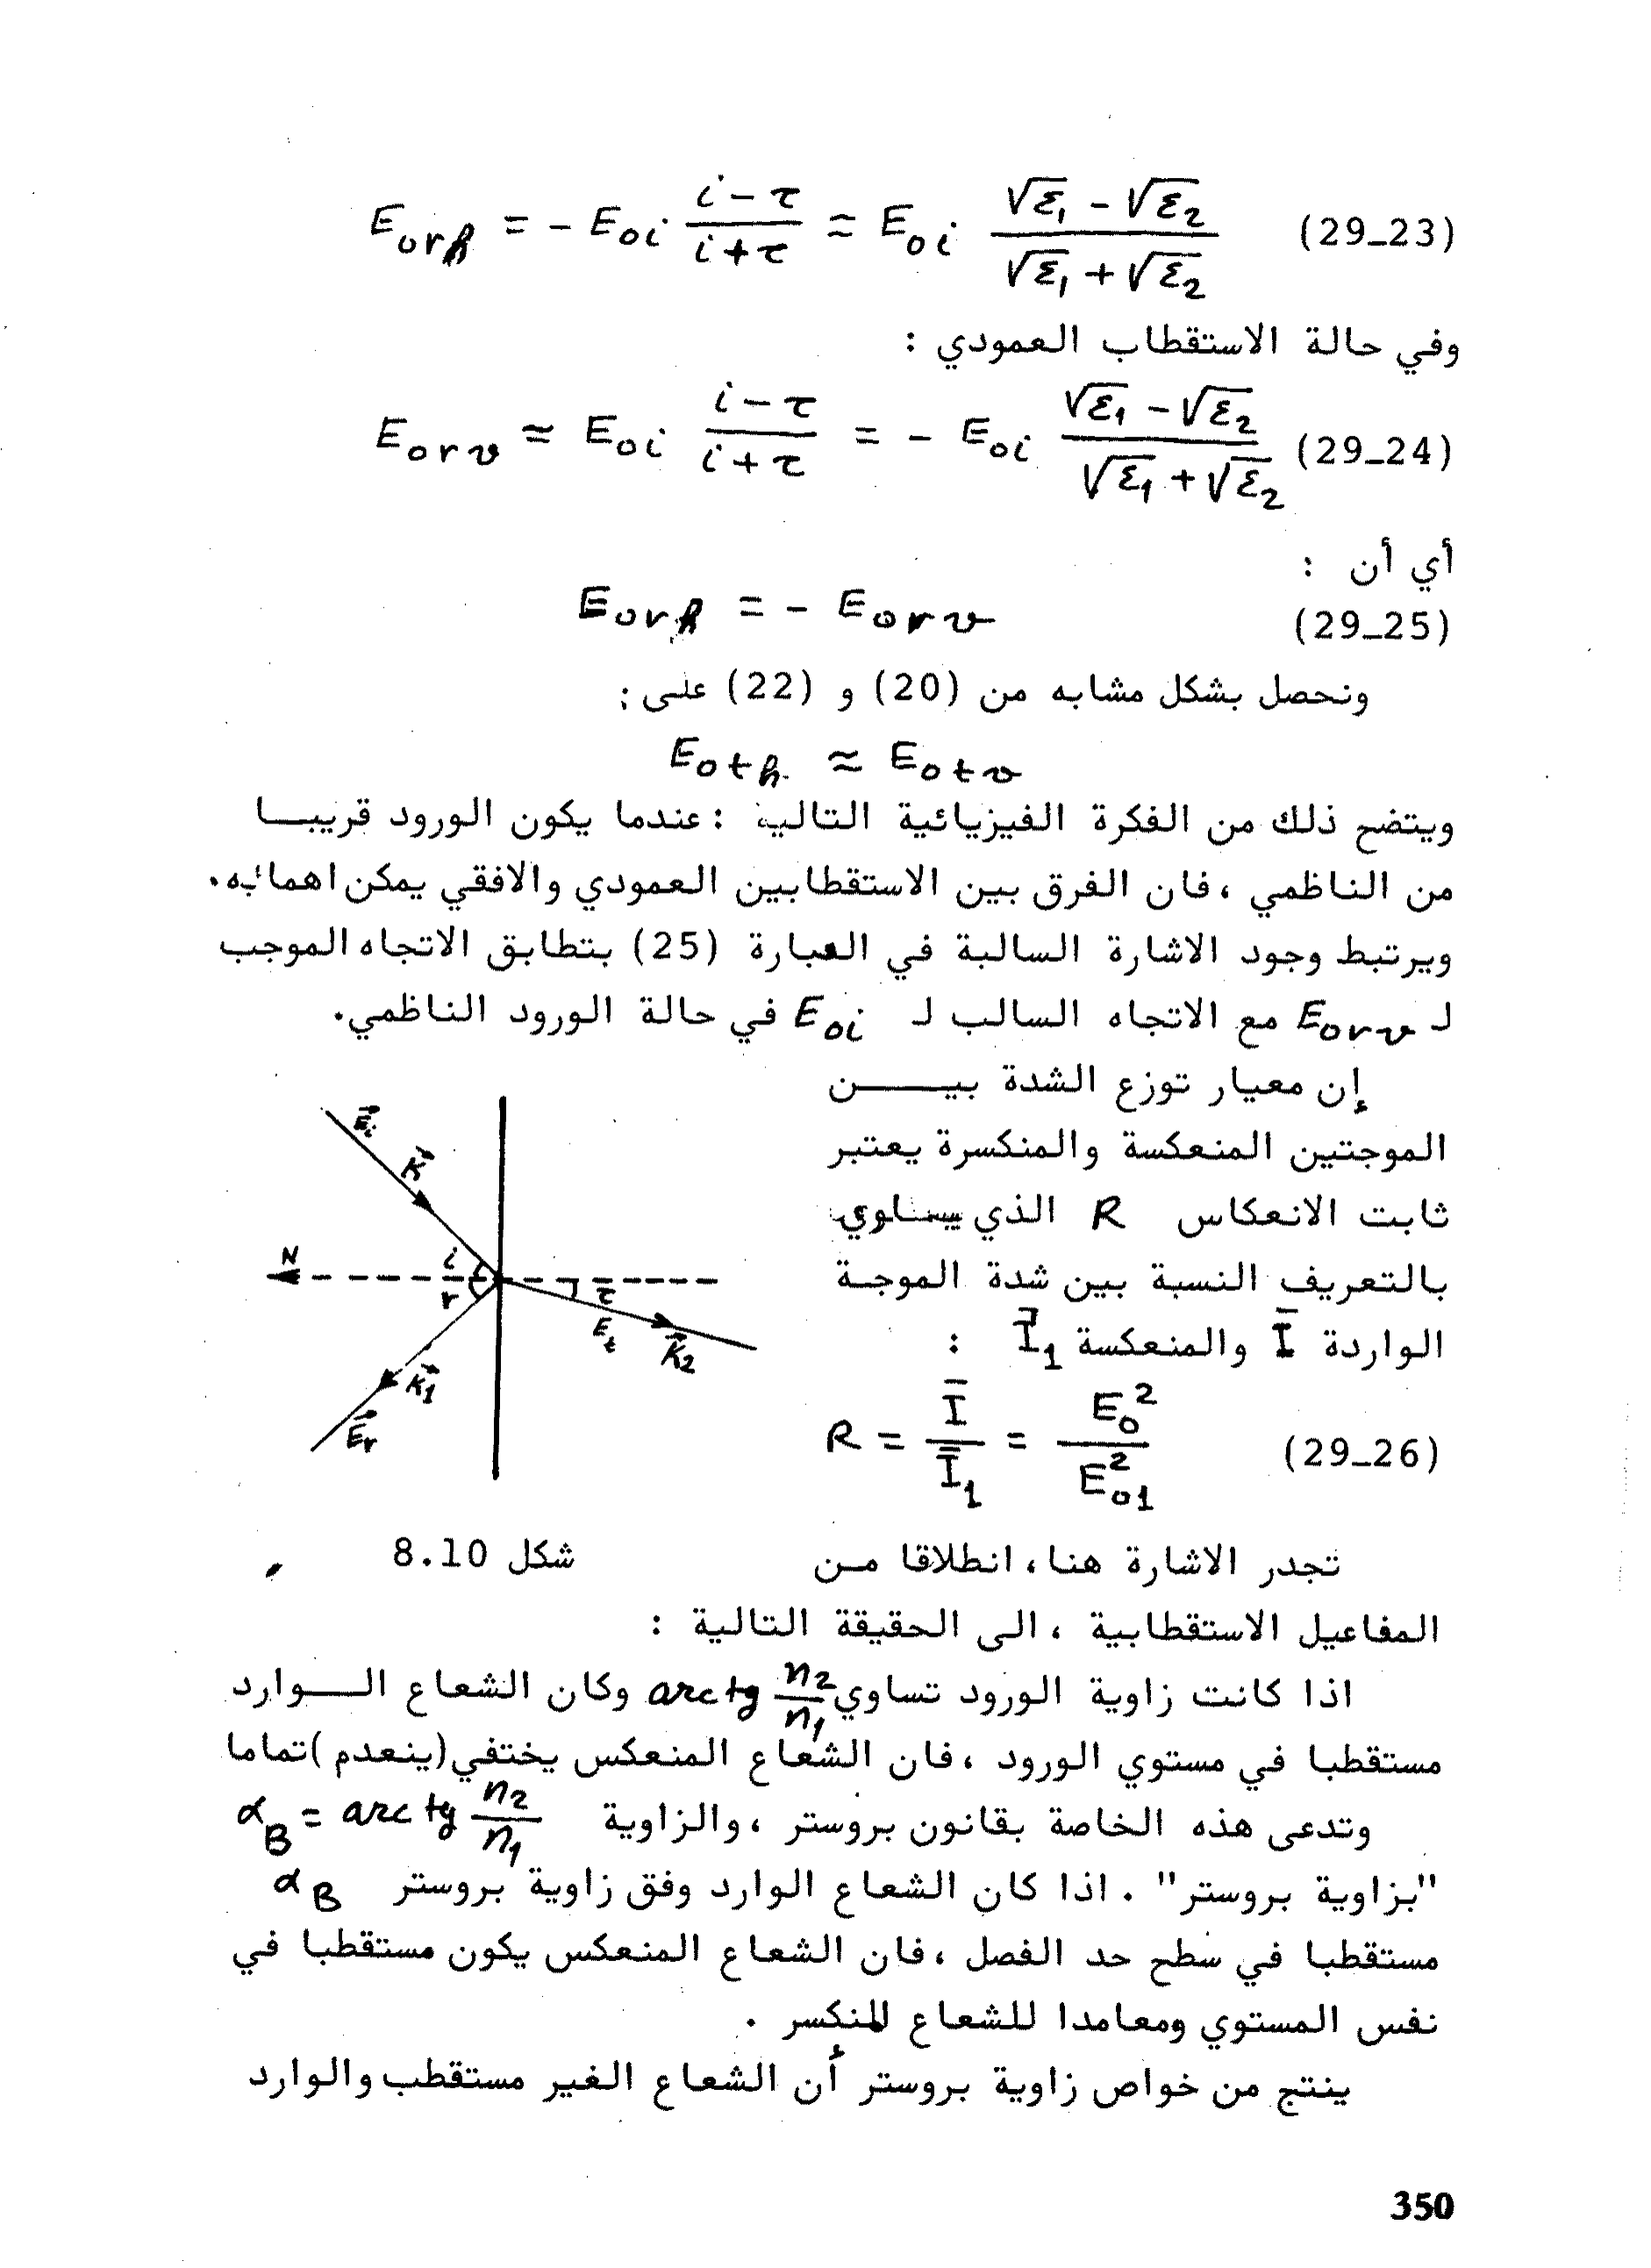 E₀rh = - E₀i (i - τ)/(i + τ) ≈ E₀i (√ε₁ - √ε₂)/(√ε₁ + √ε₂) (29_23)
وفي حالة الاستقطاب العمودي :
E₀rv ≈ E₀i (i - τ)/(i + τ) = - E₀i (√ε₁ - √ε₂)/(√ε₁ + √ε₂) (29_24)
أي أن :
E₀rh = - E₀rv (29_25)
ونحصل بشكل مشابه من (20) و (22) على :
E₀th ≈ E₀tv
ويتضح ذلك من الفكرة الفيزيائية التالية : عندما يكون الورود قريبـــا
من الناظمي ، فان الفرق بين الاستقطابين العمودي والافقي يمكن اهماله.
ويرتبط وجود الاشارة السالبة في العبارة (25) بتطابق الاتجاه الموجب
لـ E₀rv مع الاتجاه السالب لـ E₀i في حالة الورود الناظمي.
إن معيار توزع الشدة بيـــــن
الموجتين المنعكسة والمنكسرة يعتبر
ثابت الانعكاس R الذي يساوي
بالتعريف النسبة بين شدة الموجـة
الواردة Ī والمنعكسة Ī₁ :
R = Ī/Ī₁ = E₀²/E₀₁² (29_26)
E⃗i
K⃗
N
i
r
τ
Et
K⃗₂
K⃗₁
E⃗r
شكل 8.10
تجدر الاشارة هنا ، انطلاقا مـن
المفاعيل الاستقطابية ، الى الحقيقة التالية :
اذا كانت زاوية الورود تساوي arctg n₂/n₁ وكان الشعاع الـــوارد
مستقطبا في مستوي الورود ، فان الشعاع المنعكس يختفي (ينعدم) تماما
وتدعى هذه الخاصة بقانون بروستر ، والزاوية α_B = arctg n₂/n₁
"بزاوية بروستر" . اذا كان الشعاع الوارد وفق زاوية بروستر α_B
مستقطبا في سطح حد الفصل ، فان الشعاع المنعكس يكون مستقطبا في
نفس المستوي ومعامدا للشعاع المنكسر .
ينتج من خواص زاوية بروستر أن الشعاع الغير مستقطب والوارد
350